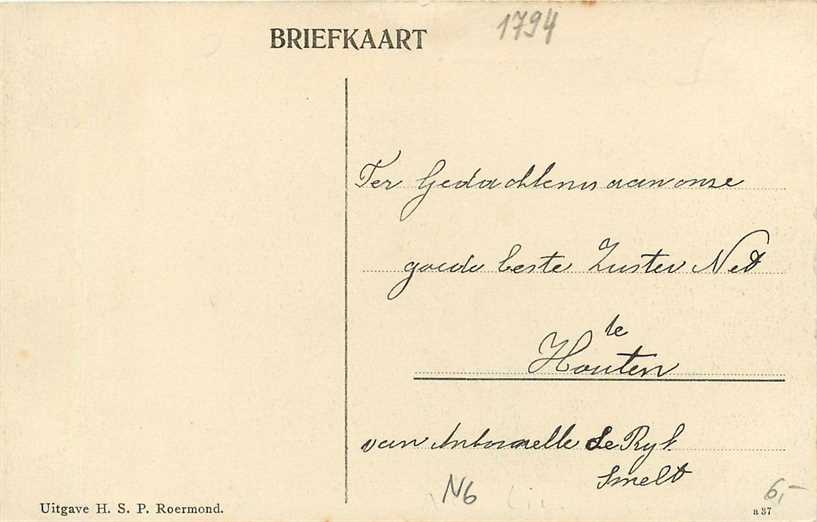 BRIEFKAART
1794
Ter Gedachtenis aan onse
goede beste Zuster Net
te
Houten
van Antonnelle de Ryk
Smelt
N6
6,-
Uitgave H. S. P. Roermond.
a 37